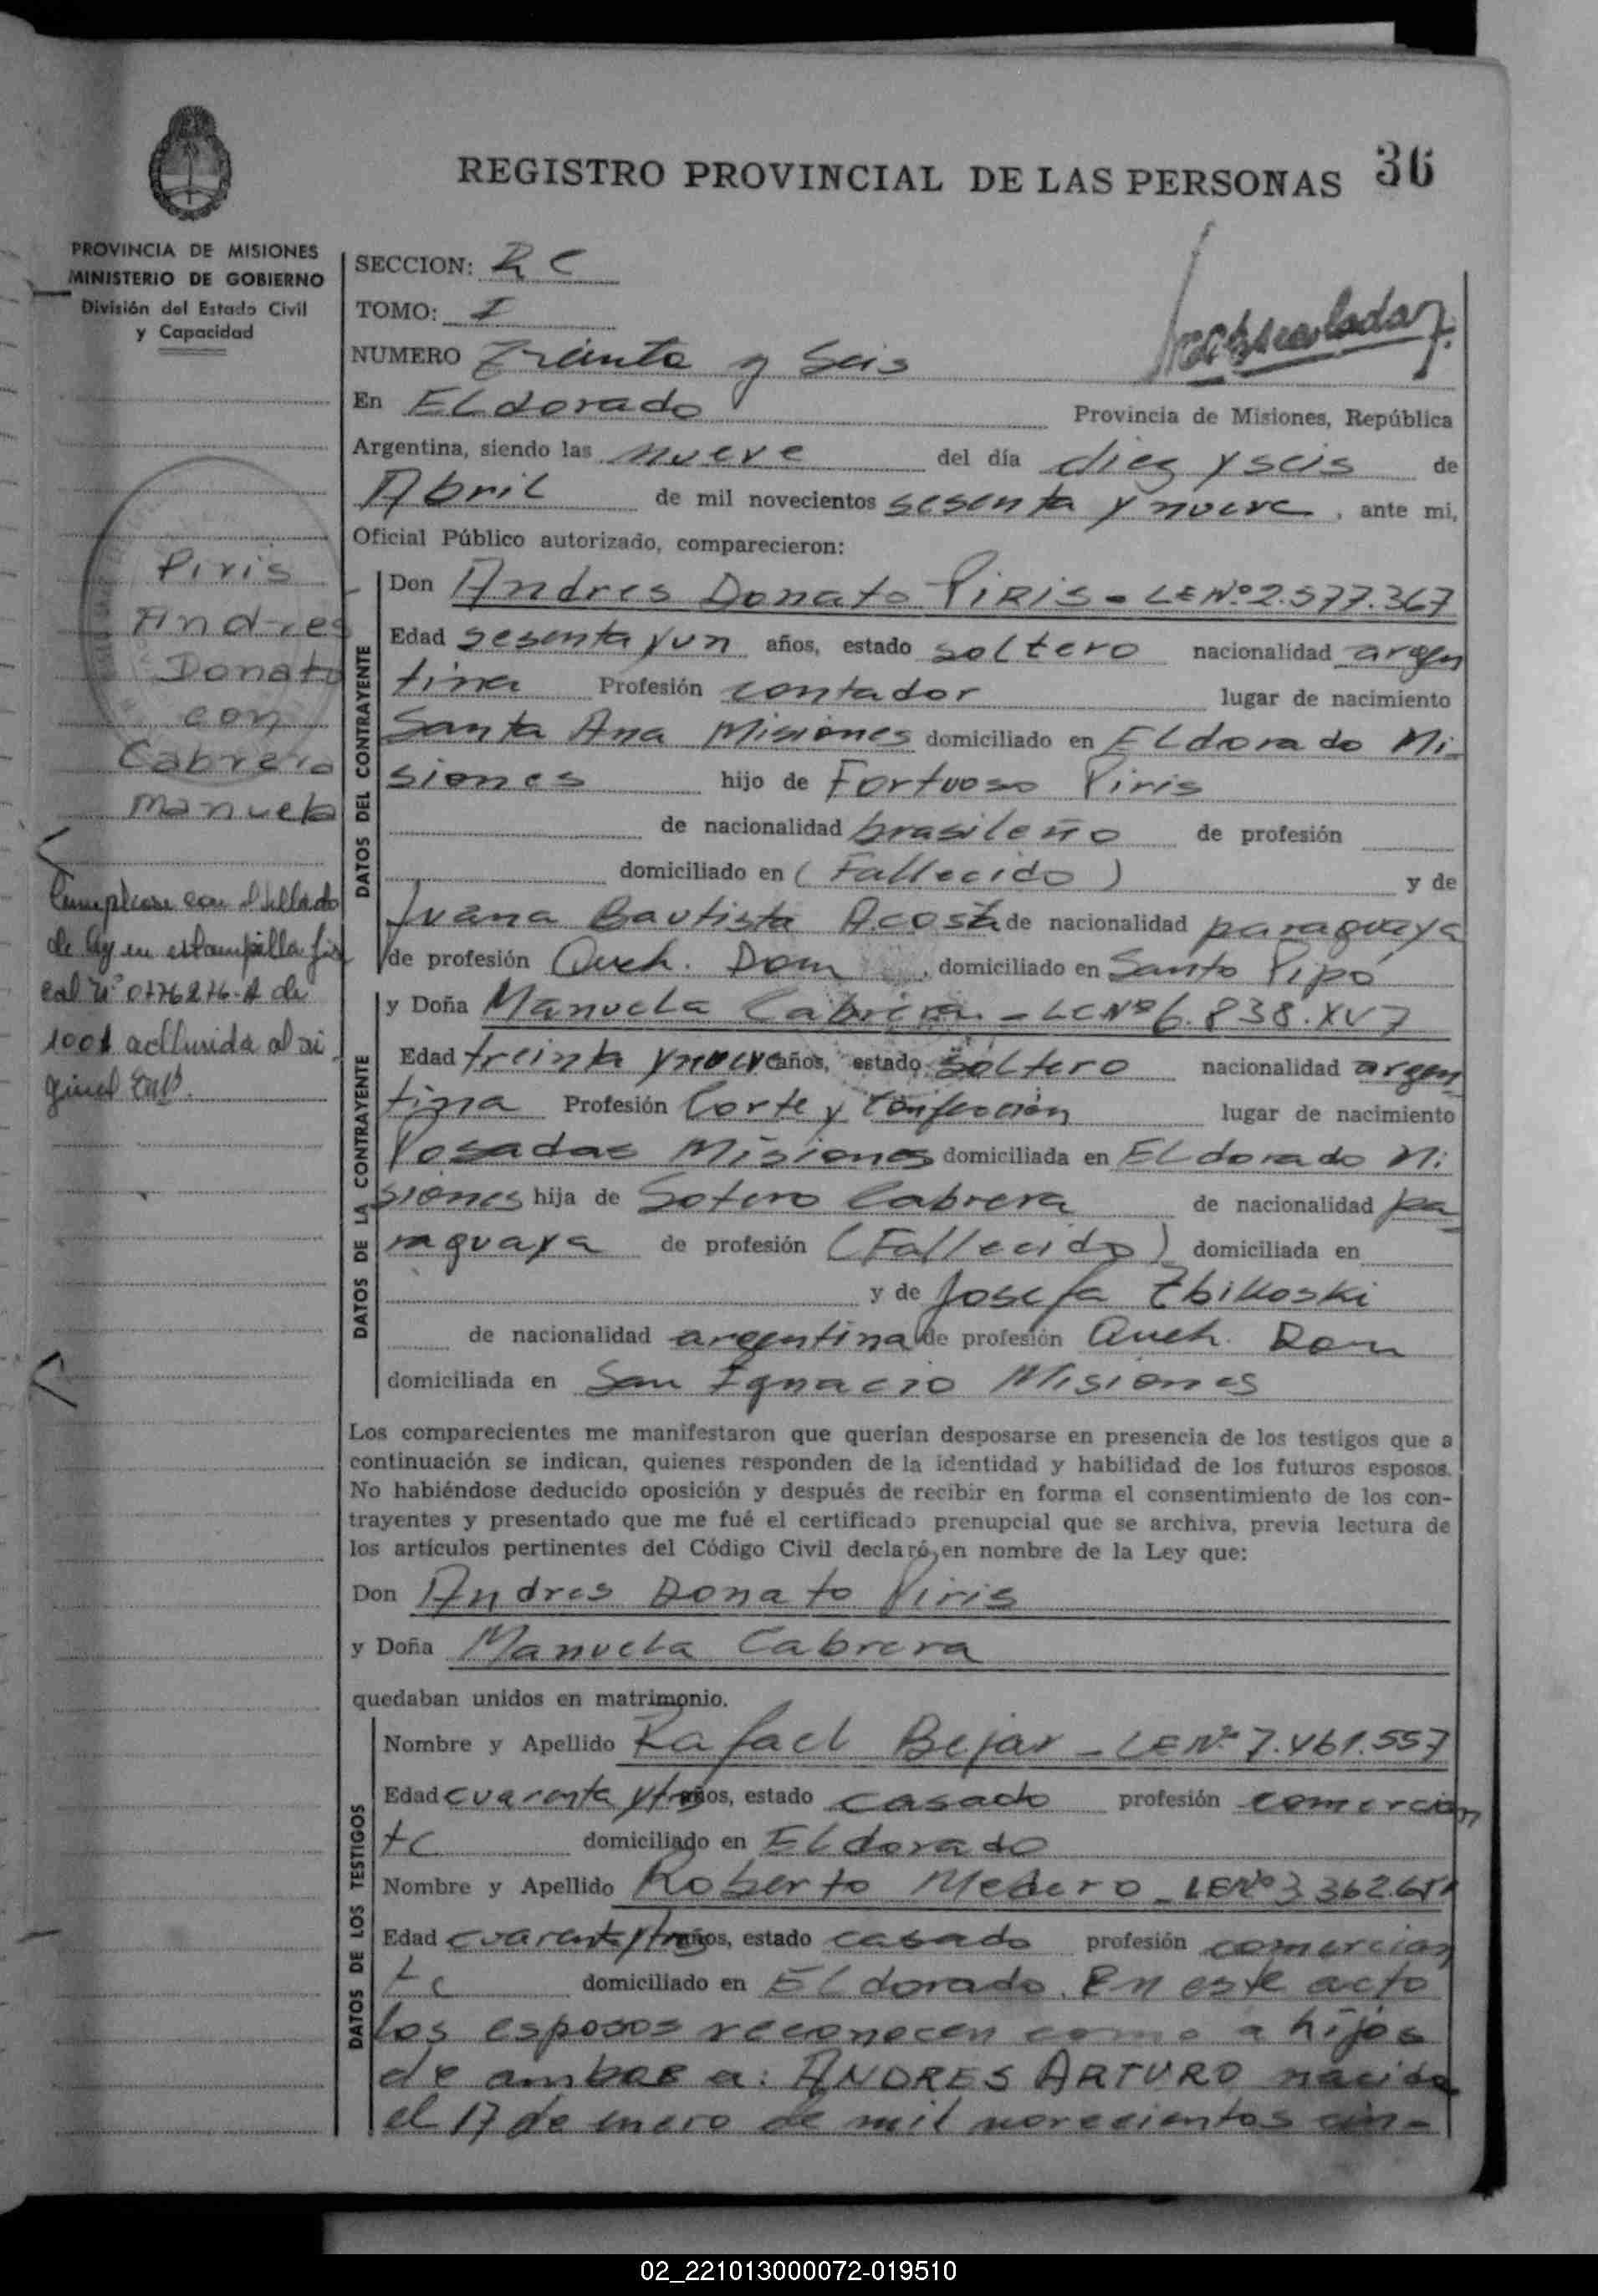 REGISTRO PROVINCIAL DE LAS PERSONAS 36
PROVINCIA DE MISIONES
MINISTERIO DE GOBIERNO
División del Estado Civil
y Capacidad
SECCION: R C
TOMO: I
NUMERO Treinta y Seis
En ELdorado Provincia de Misiones, República
Argentina, siendo las nueve del día diez y seis de
Abril de mil novecientos sesenta y nueve, ante mi,
Oficial Público autorizado, comparecieron:
Piris
Andres
Donato
con
Cabrera
Manuela
Cumplese con el sellado
de ley en estampilla fis
cal Nº 0776276-A de
100$ adherida al ori
ginal
DATOS DEL CONTRAYENTE
Don Andres Donato PIRIS - LE Nº 2.577.367
Edad sesenta y un años, estado soltero nacionalidad argen
tina Profesión contador lugar de nacimiento
Santa Ana Misiones domiciliado en ELdorado Mi-
siones hijo de Fortuoso Piris
de nacionalidad brasileño de profesión
domiciliado en (Fallecido) y de
Juana Bautista Acosta de nacionalidad paraguaya
de profesión Queh. Dom, domiciliado en Santo Pipó
DATOS DE LA CONTRAYENTE
y Doña Manuela Cabrera - LC Nº 6.838.
Edad treinta y nueve años, estado soltero nacionalidad argen
tina Profesión Corte y Confección lugar de nacimiento
Posadas Misiones domiciliada en ELdorado Mi
siones hija de Sotero Cabrera de nacionalidad pa
raguaya de profesión (Fallecido) domiciliada en
y de Josefa Zbikoski
de nacionalidad argentina de profesión Queh. Dom
domiciliada en San Ignacio Misiones
Los comparecientes me manifestaron que querían desposarse en presencia de los testigos que a
continuación se indican, quienes responden de la identidad y habilidad de los futuros esposos.
No habiéndose deducido oposición y después de recibir en forma el consentimiento de los con-
trayentes y presentado que me fué el certificado prenupcial que se archiva, previa lectura de
los artículos pertinentes del Código Civil declaró, en nombre de la Ley que:
Don Andres Donato Piris
y Doña Manuela Cabrera
quedaban unidos en matrimonio.
DATOS DE LOS TESTIGOS
Nombre y Apellido Rafael Bejar - LE Nº 7.461.557
Edad cuarenta y tres años, estado casado profesión comercian
te domiciliado en ELdorado
Nombre y Apellido Roberto Medero - LE Nº 3.362.
Edad cuarenta y tres años, estado casado profesión comercian
te domiciliado en ELdorado. En este acto
los esposos reconocen como a hijos
de ambos a: ANDRES ARTURO nacido
el 17 de enero de mil novecientos cin-
02_221013000072-019510